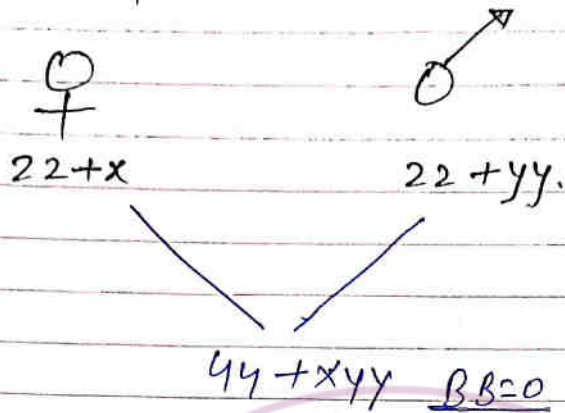 ♀ ♂
22+x 22+yy.
44+xyy BB=0